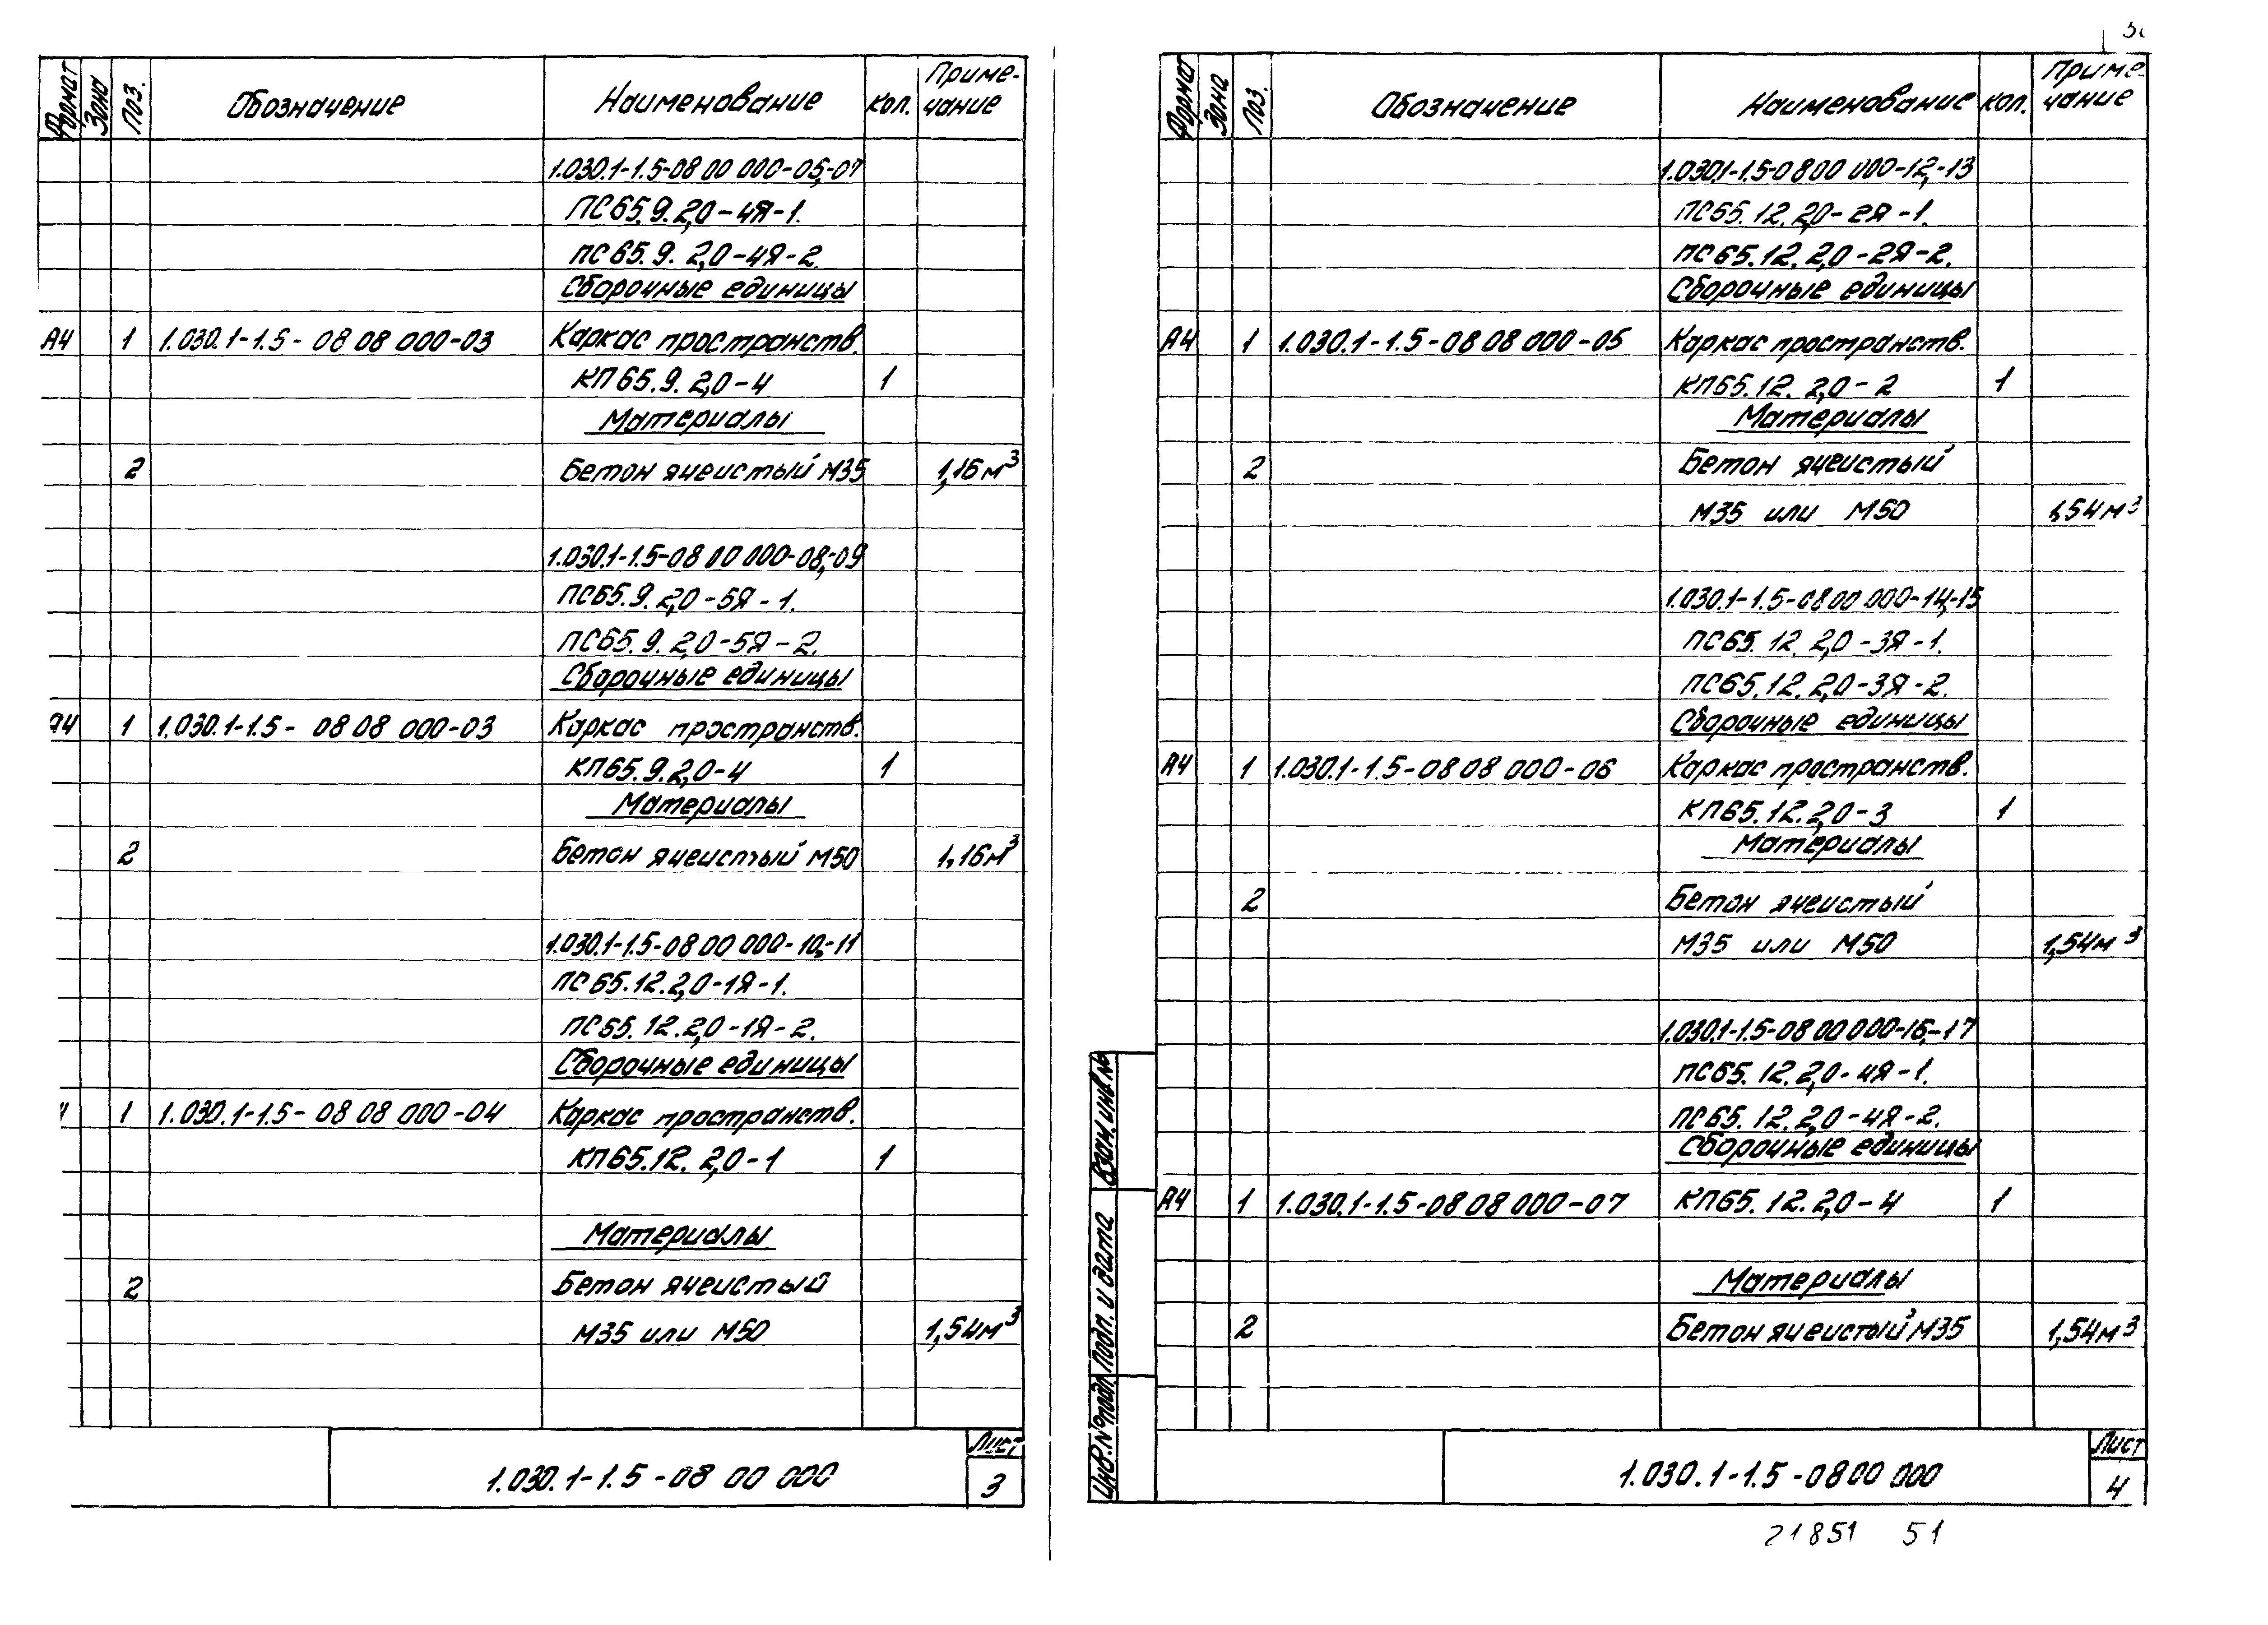 Формат Зона Поз. Обозначение Наименование Кол. Приме-
чание
1.030.1-1.5-08 00 000-05,-07
ПС65.9.2,0-4Я-1.
ПС65.9.2,0-4Я-2.
Сборочные единицы
А4 1 1.030.1-1.5-08 08 000-03 Каркас пространств.
КП65.9.2,0-4 1
Материалы
2 Бетон ячеистый М35 1,16м³
1.030.1-1.5-08 00 000-08,-09
ПС65.9.2,0-5Я-1.
ПС65.9.2,0-5Я-2.
Сборочные единицы
А4 1 1.030.1-1.5-08 08 000-03 Каркас пространств.
КП65.9.2,0-4 1
Материалы
2 Бетон ячеистый М50 1,16м³
1.030.1-1.5-08 00 000-10,-11
ПС65.12.2,0-1Я-1.
ПС65.12.2,0-1Я-2.
Сборочные единицы
1 1.030.1-1.5-08 08 000-04 Каркас пространств.
КП65.12.2,0-1 1
Материалы
2 Бетон ячеистый
М35 или М50 1,54м³
1.030.1-1.5-08 00 000
Лист
3
Формат Зона Поз. Обозначение Наименование Кол. Приме-
чание
1.030.1-1.5-08 00 000-12,-13
ПС65.12.2,0-2Я-1.
ПС65.12.2,0-2Я-2.
Сборочные единицы
А4 1 1.030.1-1.5-08 08 000-05 Каркас пространств.
КП65.12.2,0-2 1
Материалы
2 Бетон ячеистый
М35 или М50 1,54м³
1.030.1-1.5-08 00 000-14,-15
ПС65.12.2,0-3Я-1.
ПС65.12.2,0-3Я-2.
Сборочные единицы
А4 1 1.030.1-1.5-08 08 000-06 Каркас пространств.
КП65.12.2,0-3 1
Материалы
2 Бетон ячеистый
М35 или М50 1,54м³
1.030.1-1.5-08 00 000-16,-17
ПС65.12.2,0-4Я-1.
ПС65.12.2,0-4Я-2.
Сборочные единицы
А4 1 1.030.1-1.5-08 08 000-07 КП65.12.2,0-4 1
Материалы
2 Бетон ячеистый М35 1,54м³
Взам. инв №
Подп. и дата
Инв.№подл.
1.030.1-1.5-08 00 000
Лист
4
21851 51